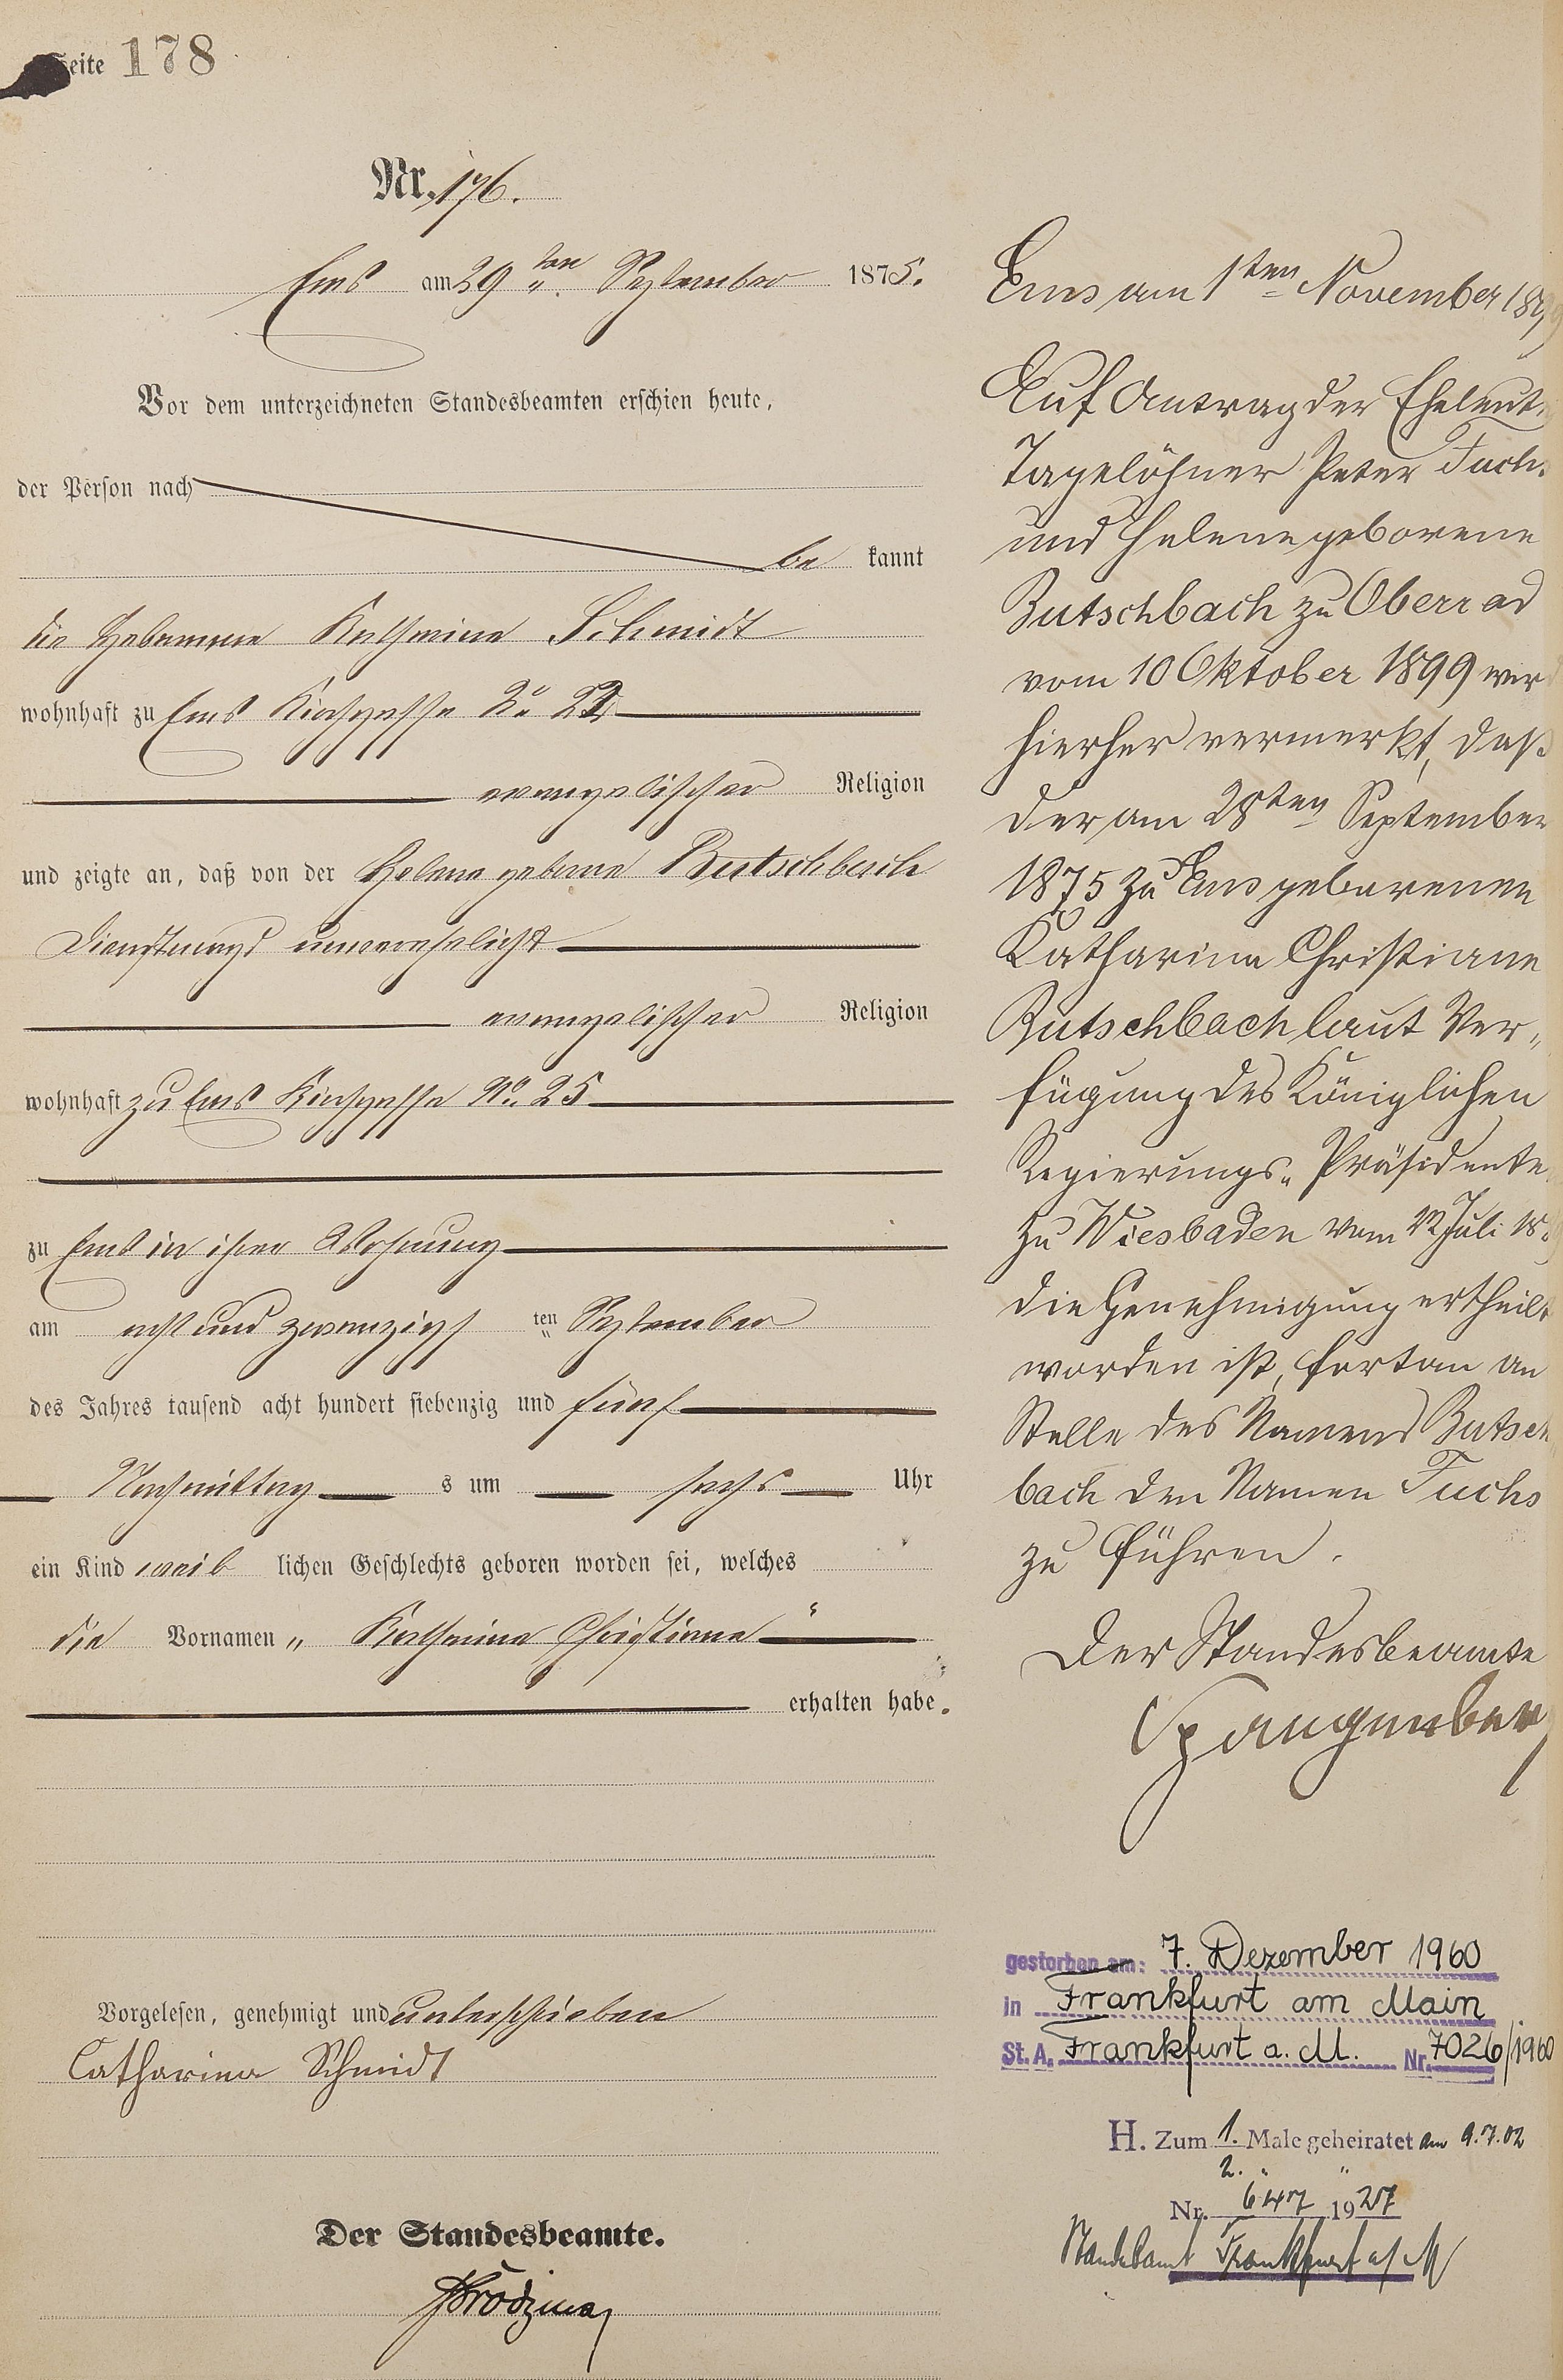 Seite 178
Nr. 176.
Ems am 29ten September 1875.
Vor dem unterzeichneten Standesbeamten erschien heute,
der Person nach
be kannt
die Hebamme Katharina Schmidt
wohnhaft zu Ems Kirchgasse No
evangelischer Religion
und zeigte an, daß von der Helene geborne Butschbach
Dienstmagd unverehelicht
evangelischer Religion
wohnhaft zu Ems Kirchgasse No. 25
zu Ems in ihrer Wohnung
am acht und zwanzigs ten September
des Jahres tausend acht hundert siebenzig und fünf
Nachmittag s um sechs Uhr
ein Kind weib lichen Geschlechts geboren worden sei, welches
die Vornamen „ Katharina Christiane “
erhalten habe.
Vorgelesen, genehmigt und unterschrieben
Catharina Schmidt
Der Standesbeamte.
Ems am 1ten November 189
Auf Antrag der Eheleute
Tagelöhner Peter Fuchs
und Helene geborene
Butschbach zu Oberrad
vom 10 Oktober 1899 wird
hierher vermerkt, daß
der am 28ten September
1875 zu Ems geborenen
Katharina Christiane
Butschbach laut Ver„
fügung des Königlichen
Regierungs„ Präsidenten
zu Wiesbaden vom 12 Juli 18
die Genehmigung ertheilt
worden ist, fortan an
Stelle des Namens Butsch
bach den Namen Fuchs
zu führen.
Der Standesbeamte
Spangenberg
gestorben am: 7. Dezember 1960
in Frankfurt am Main
St. A. Frankfurt a. M. Nr. 7026/1960
H. Zum 1. Male geheiratet am 9.7.02
2. " "
Nr. 647 1927
Standesamt Frankfurt a/M